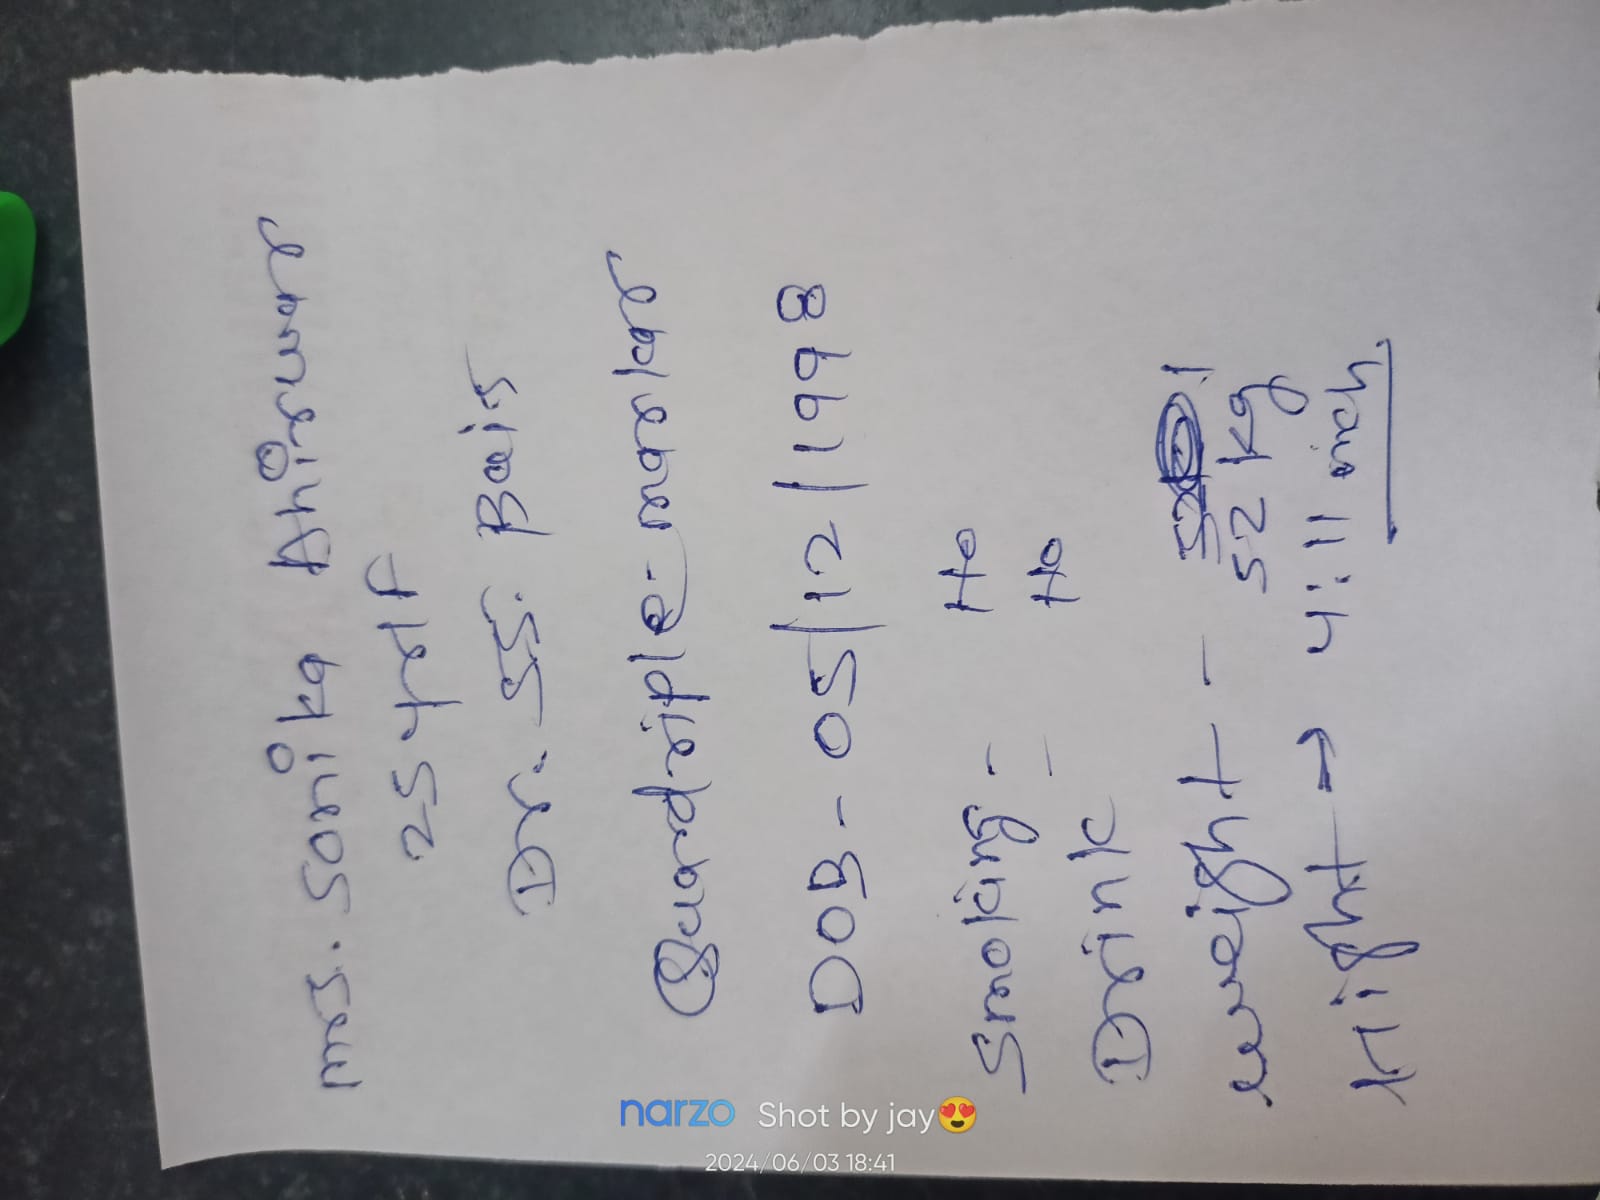 Mrs. Sonika Ahirwar
25 yr/F
Dr. SS. Bais
Quadriple-marker
DOB - 05/12/1998
Smoking - No
Drink - No
weight - 52 kg
Hight → 4:11 inch
narzo Shot by jay😍
2024/06/03 18:41